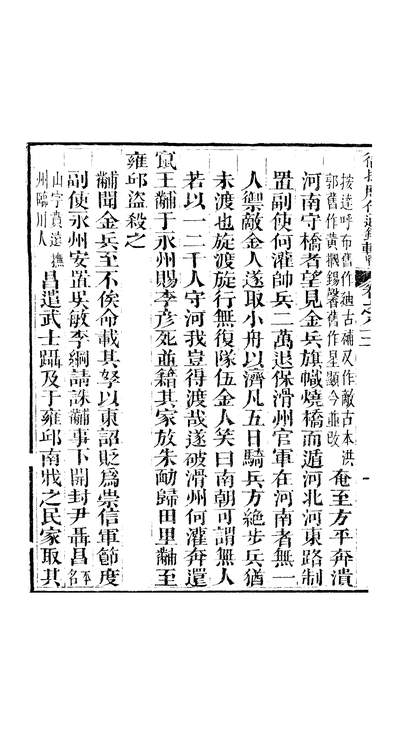 按達呼布舊作迪古補又作敵古本洪
郭舊作黃摑錫馨舊作星顯今並改
奄至方平奔潰
河南守橋者望見金兵旗幟燒橋而遁河北河東路制
置副使何灌帥兵二萬退保滑州官軍在河南者無一
人禦敵金人遂取小舟以濟凡五日騎兵方絕步兵猶
未渡也旋渡旋行無復隊伍金人笑曰南朝可謂無人
若以一二千人守河我豈得渡哉遂破滑州何灌奔還
竄王黼于永州賜李彥死並籍其家放朱勔歸田里黼至
雍邱盜殺之
黼聞金兵至不俟命載其孥以東詔貶爲崇信軍節度
副使永州安置吳敏李綱請誅黼事下開封尹聶昌本名
山字賁遠撫
州臨川人
昌遣武士躡及于雍邱南戕之民家取其